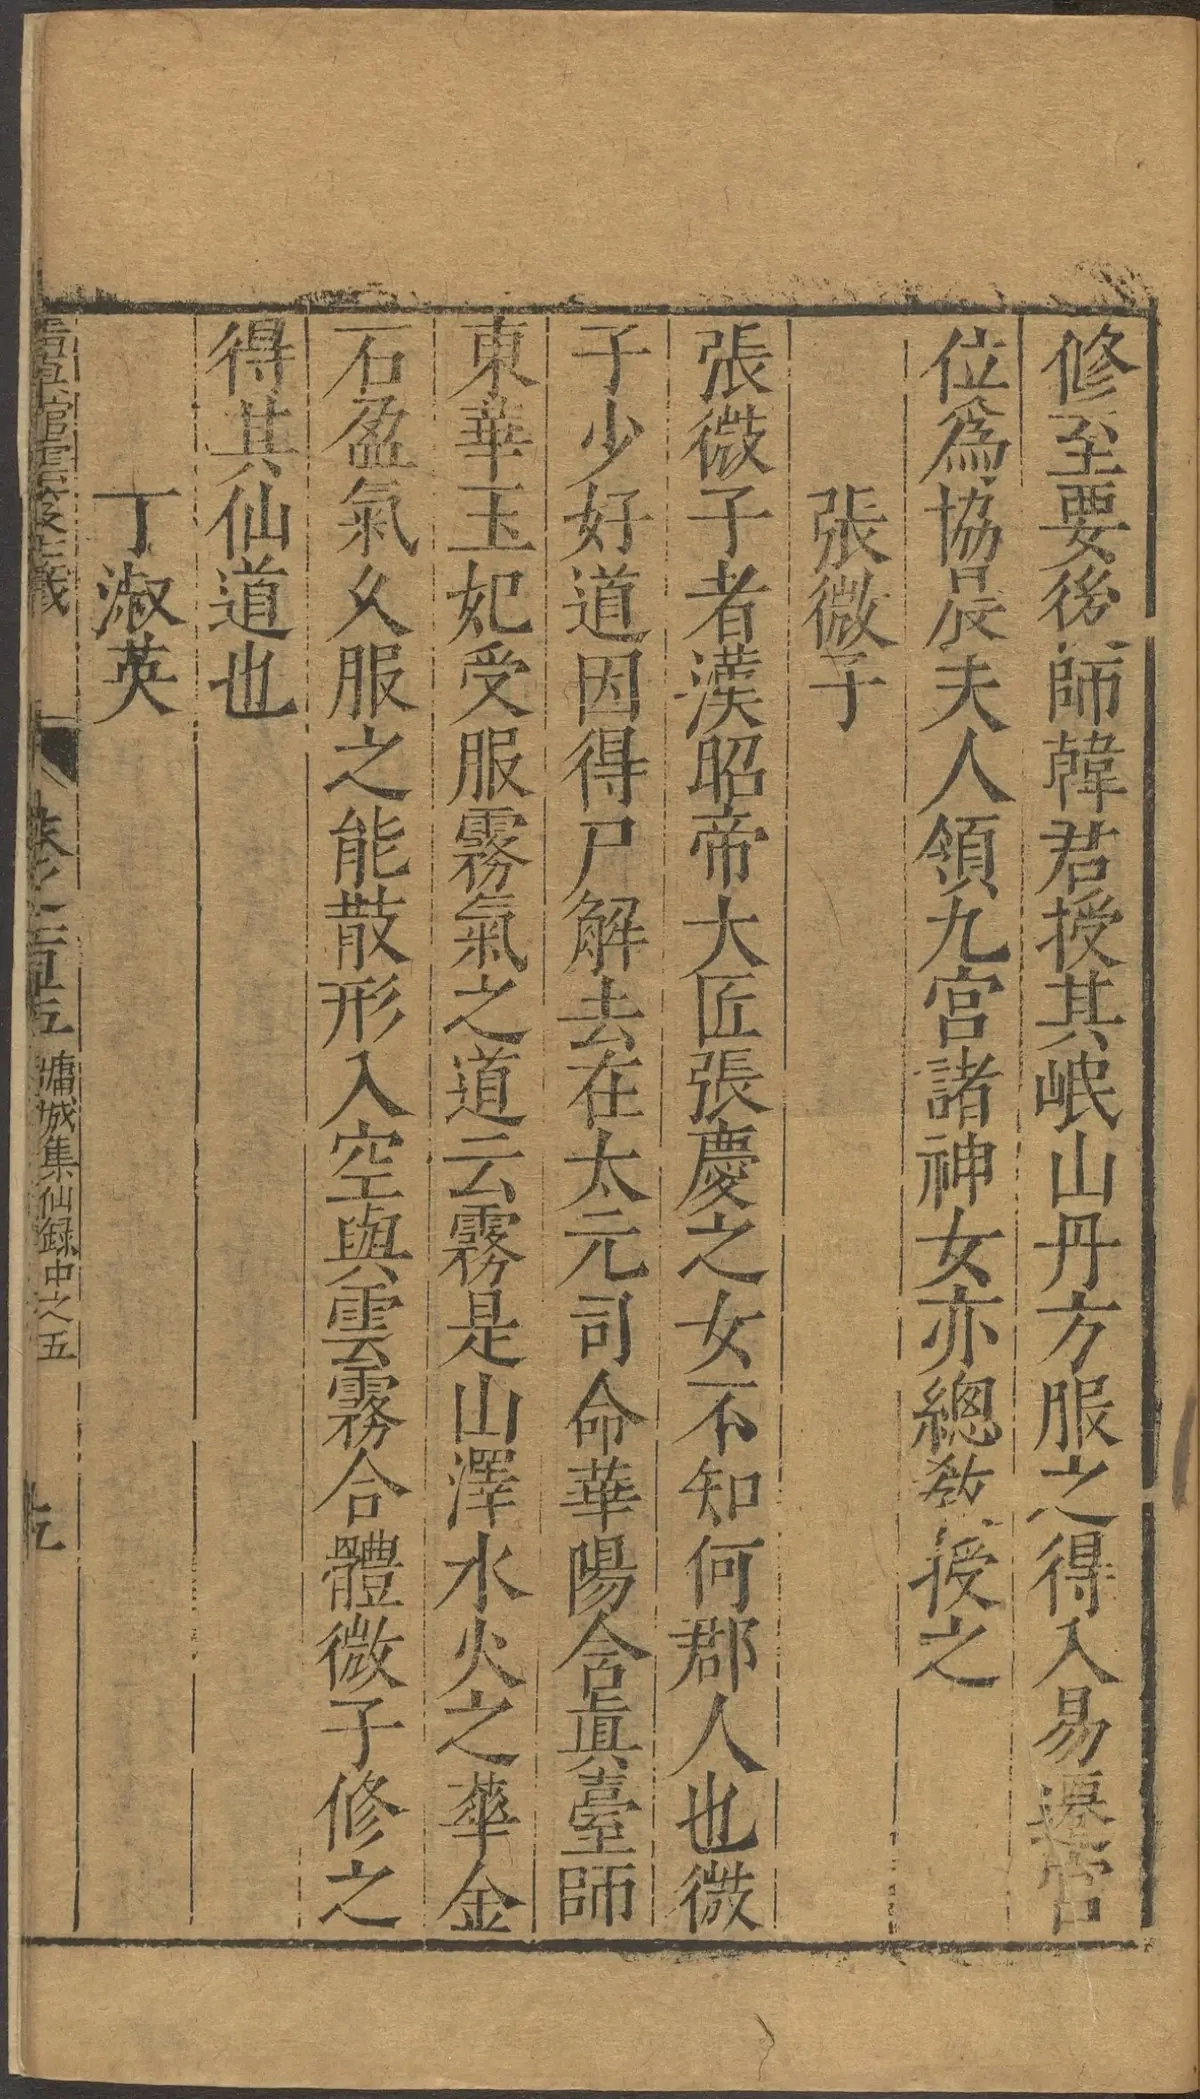 修至要後師韓君授其岷山丹方服之得入易遷宮
位爲協晨夫人領九宮諸神女亦總教授之
張微子
張微子者漢昭帝大匠張慶之女不知何郡人也微
子少好道因得尸解去在太元司命華陽含眞臺師
東華玉妃受服霧氣之道云霧是山澤水火之華金
石盈氣久服之能散形入空與雲霧合體微子修之
得其仙道也
丁淑英
卷之一百十五 墉城集仙録中之五